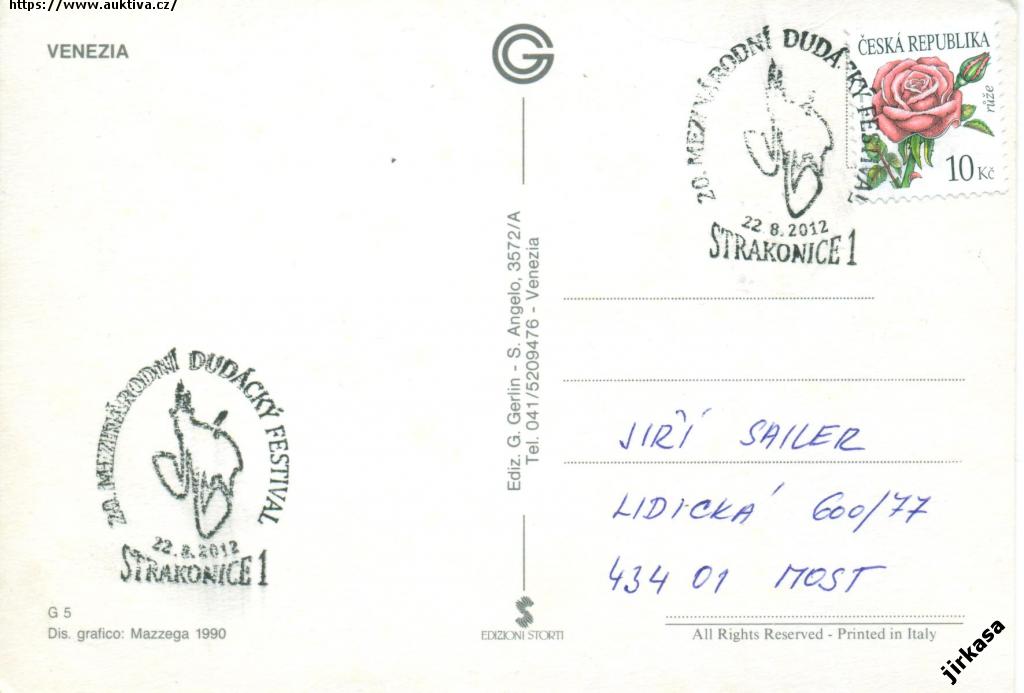 https://www.auktiva.cz/
VENEZIA
20. MEZINÁRODNÍ DUDÁCKÝ FESTIVAL
22.8.2012
STRAKONICE 1
ČESKÁ REPUBLIKA
růže
10 Kč
Ediz. G. Gerlin - S. Angelo, 3572/A
Tel. 041/5209476 - Venezia
JIŘÍ SAILER
LIDICKÁ 600/77
434 01 MOST
20. MEZINÁRODNÍ DUDÁCKÝ FESTIVAL
22.8.2012
STRAKONICE 1
G 5
Dis. grafico: Mazzega 1990
EDIZIONI STORTI
All Rights Reserved - Printed in Italy
jirkasa